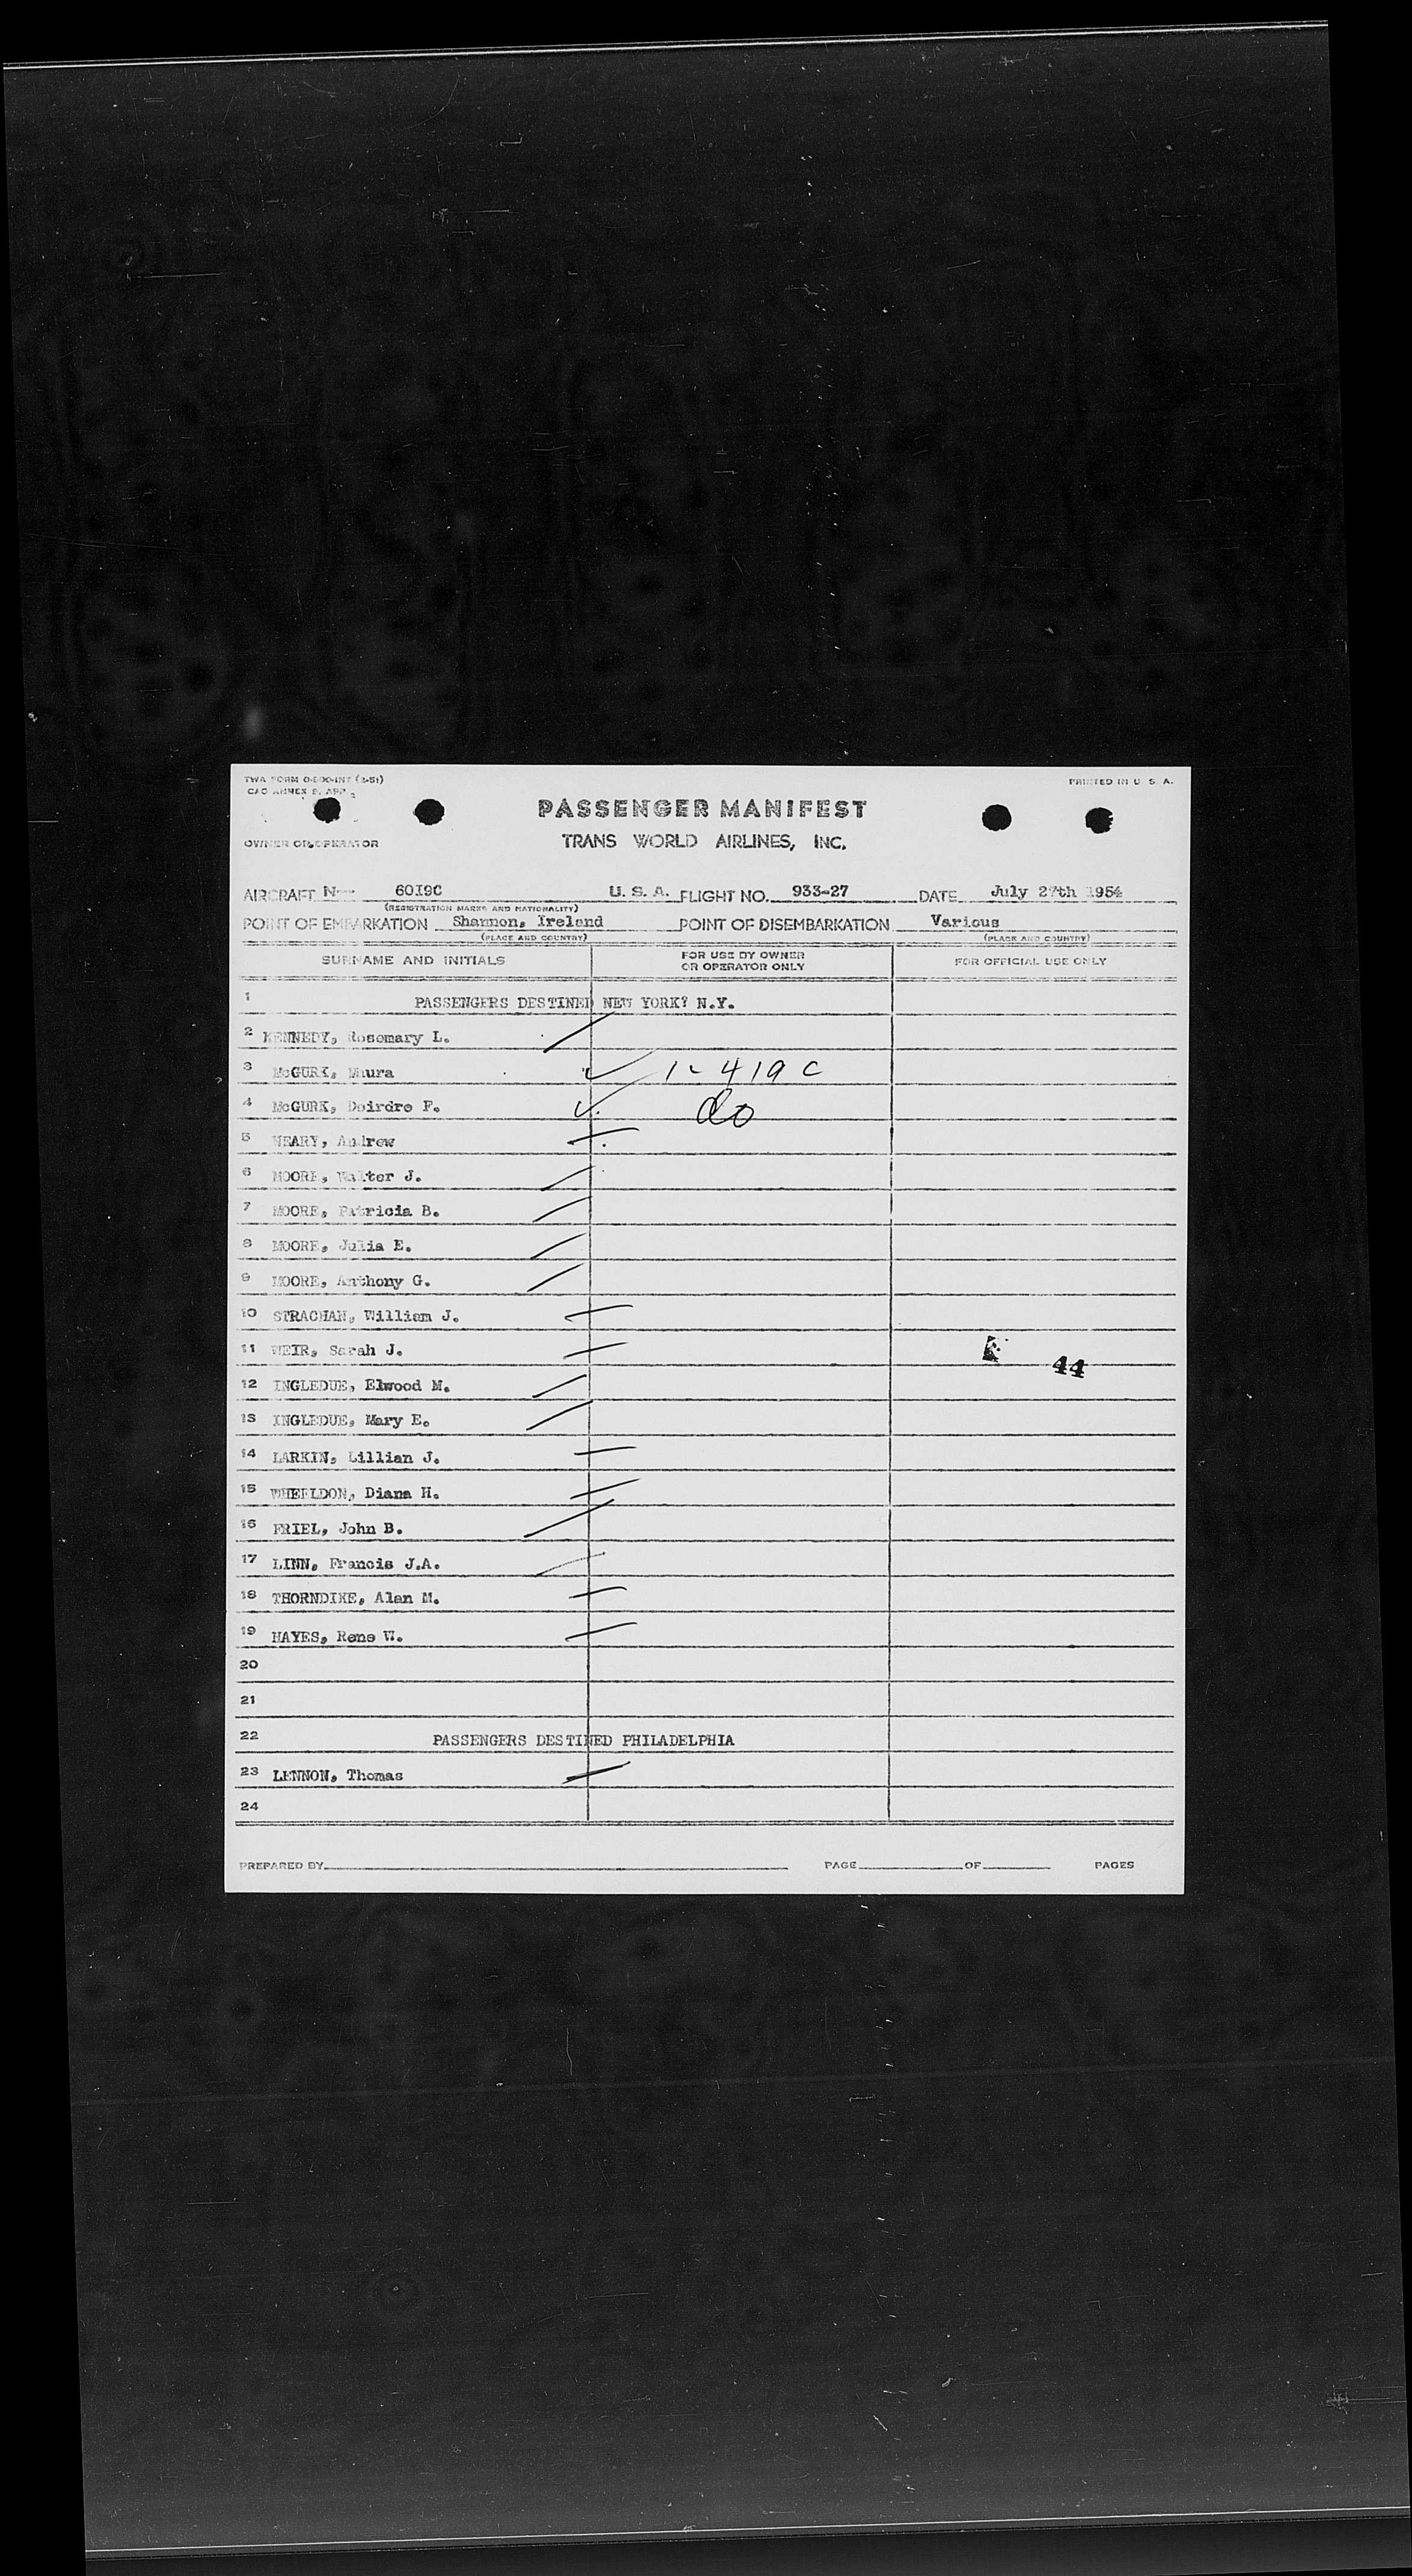 TWA FORM
PRINTED IN U. S. A.
PASSENGER MANIFEST
TRANS WORLD AIRLINES, INC.
OWNER OR OPERATOR
AIRCRAFT N 6019C U. S. A. FLIGHT NO. 933-27 DATE July 27th 1954
(REGISTRATION MARKS AND NATIONALITY)
POINT OF EMBARKATION Shannon, Ireland POINT OF DISEMBARKATION Various
(PLACE AND COUNTRY) (PLACE AND COUNTRY)
SURNAME AND INITIALS FOR USE BY OWNER OR OPERATOR ONLY FOR OFFICIAL USE ONLY
1 PASSENGERS DESTINED NEW YORK? N.Y.
2 KENNEDY, Rosemary L.
3 McGURK, Maura 1-419 C
4 McGURK, Deirdre F. do
5 Andrew
6 MOORE, Walter J.
7 MOORE, Patricia B.
8 MOORE, Julia E.
9 MOORE, Anthony G.
10 STRACHAN, William J.
11 WEIR, Sarah J. 44
12 INGLEDUE, Elwood M.
13 INGLEDUE, Mary E.
14 LARKIN, Lillian J.
15 WHEELDON, Diana H.
16 FRIEL, John B.
17 LINN, Francis J.A.
18 THORNDIKE, Alan M.
19 HAYES, Rene W.
20
21
22 PASSENGERS DESTINED PHILADELPHIA
23 LENNON, Thomas
24
PREPARED BY PAGE OF PAGES